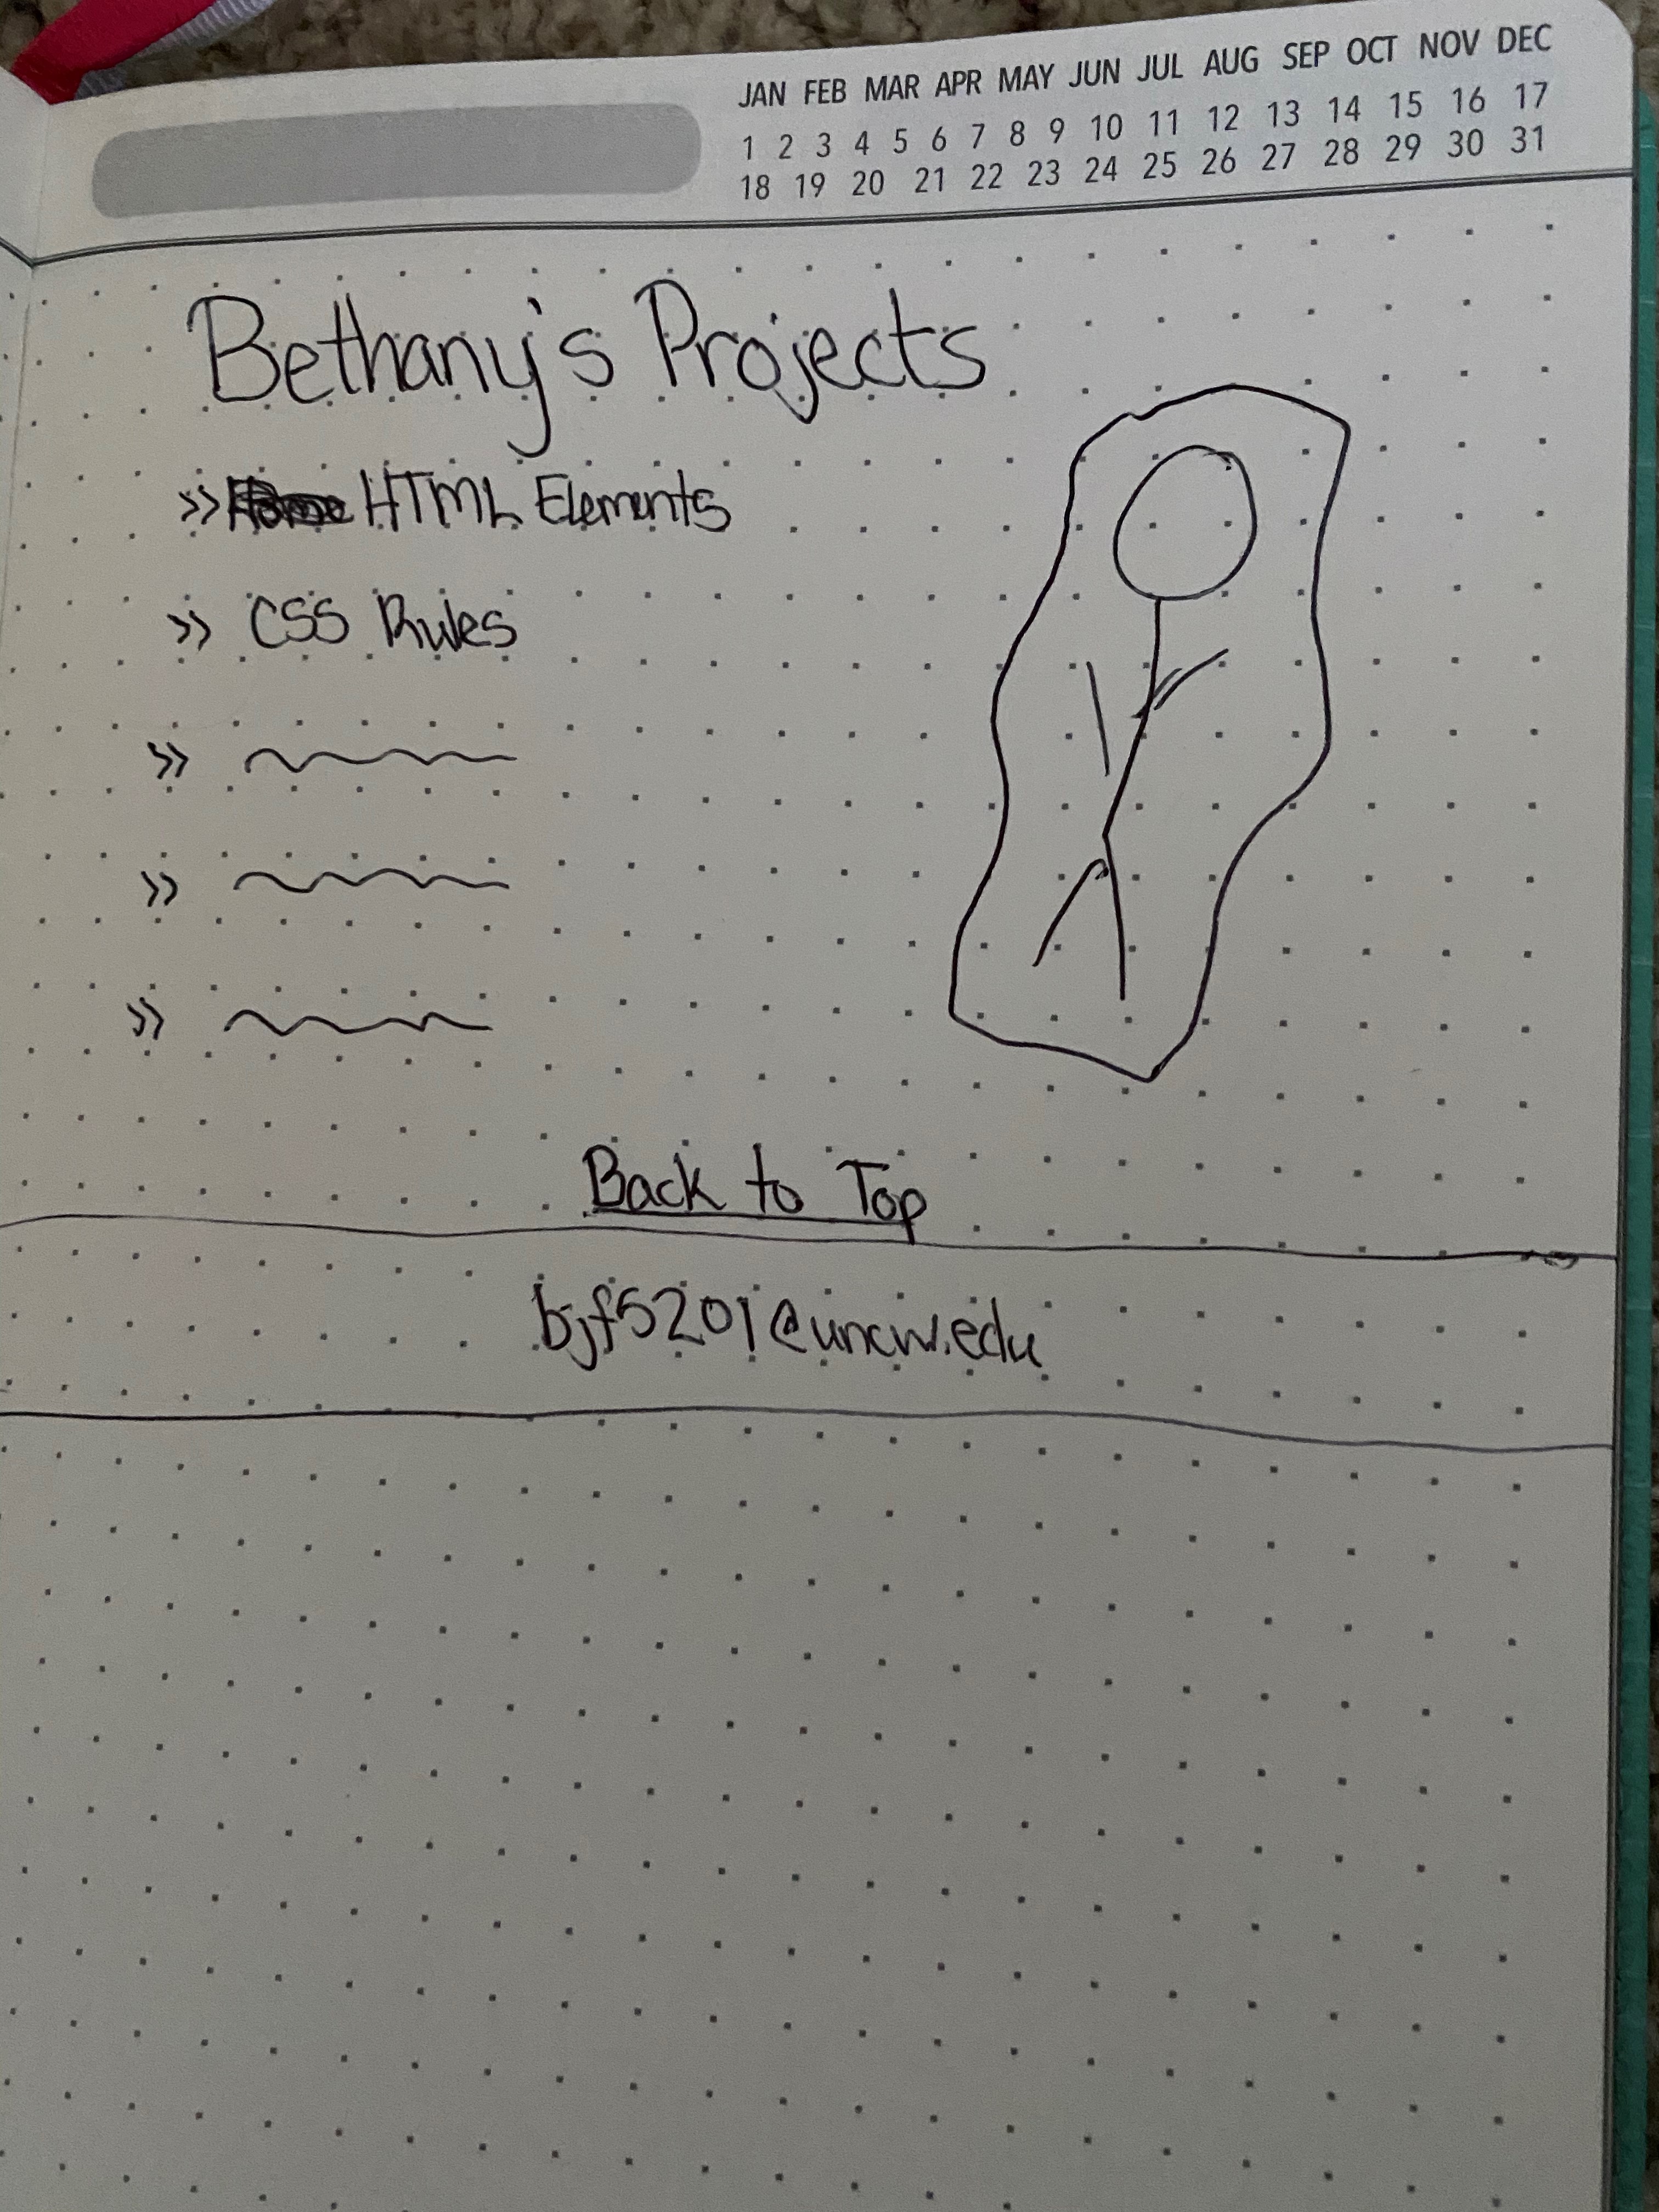 JAN FEB MAR APR MAY JUN JUL AUG SEP OCT NOV DEC
1 2 3 4 5 6 7 8 9 10 11 12 13 14 15 16 17
18 19 20 21 22 23 24 25 26 27 28 29 30 31
Bethany's Projects
>> HTML Elements
>> CSS Rules
>>
>>
>>
Back to Top
bjf5201@uncw.edu